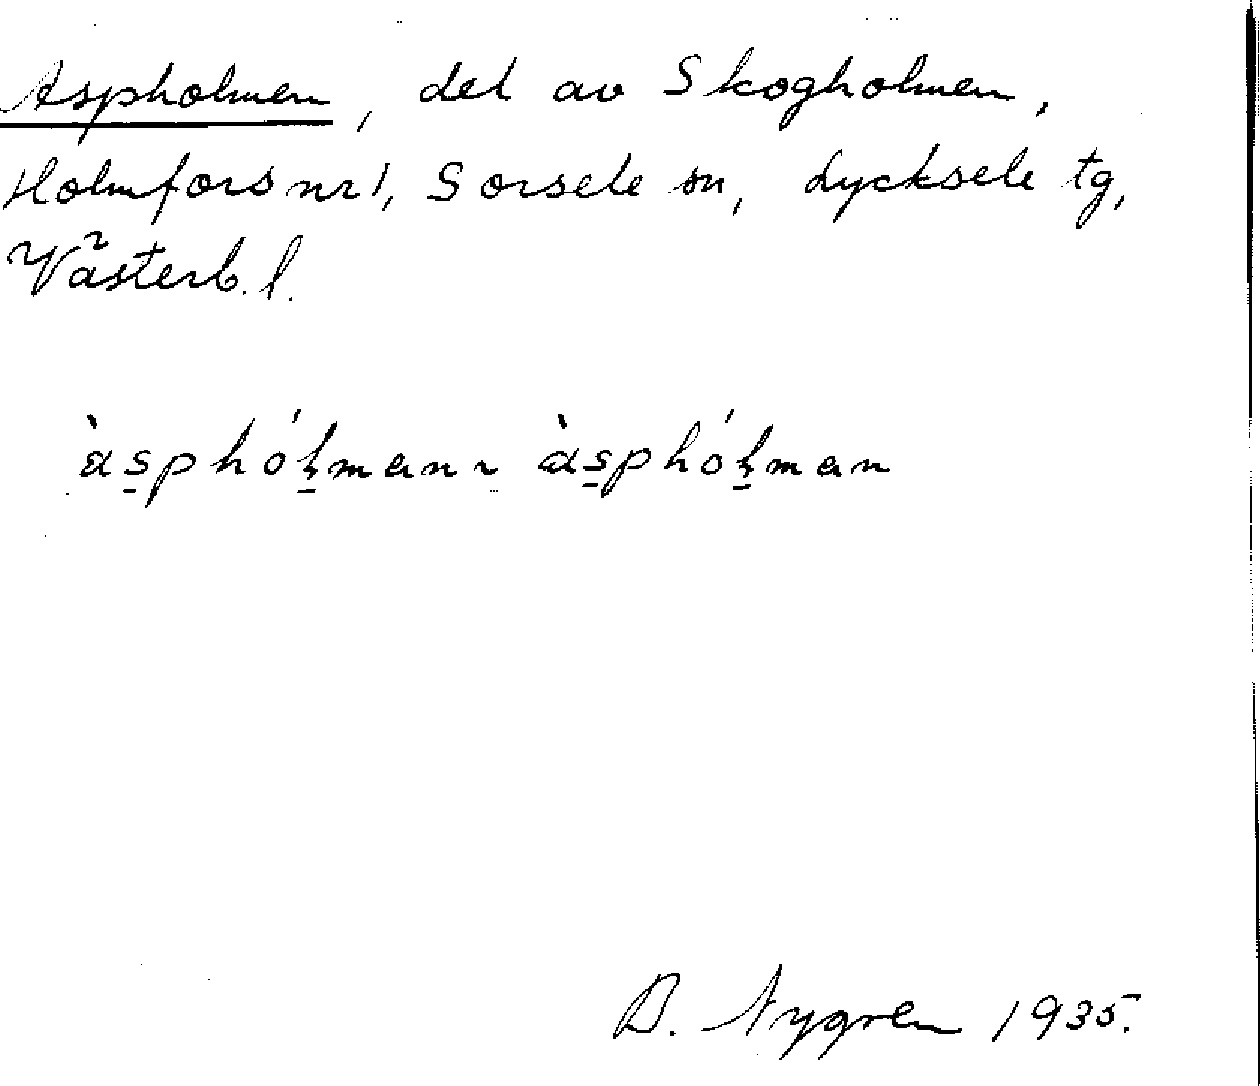 Aspholmen, del av Skogholmen,
Holmfors nr 1, Sorsele sn, Lycksele tg,
Västerb. l.
àsphóḻmann àsphóḻman
B. Nygren 1935.